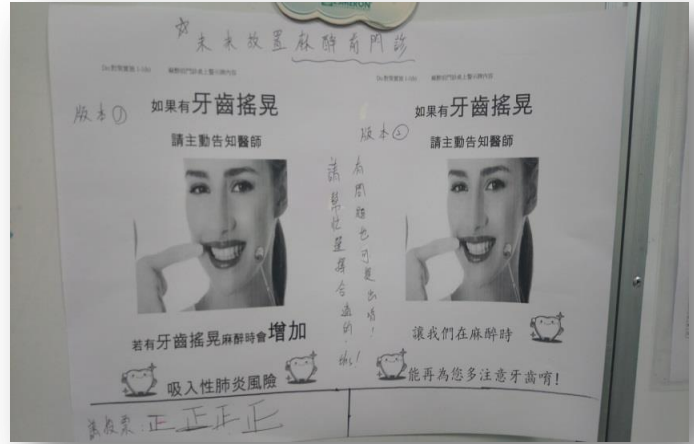 ☆ 未來放置麻醉前門診
版本①
如果有牙齒搖晃
請主動告知醫師
若有牙齒搖晃麻醉時會增加
吸入性肺炎風險
請幫忙選擇合適的,thx!
有問題也可提出唷!
版本②
如果有牙齒搖晃
請主動告知醫師
讓我們在麻醉時
能再為您多注意牙齒唷!
請投票:正正正正